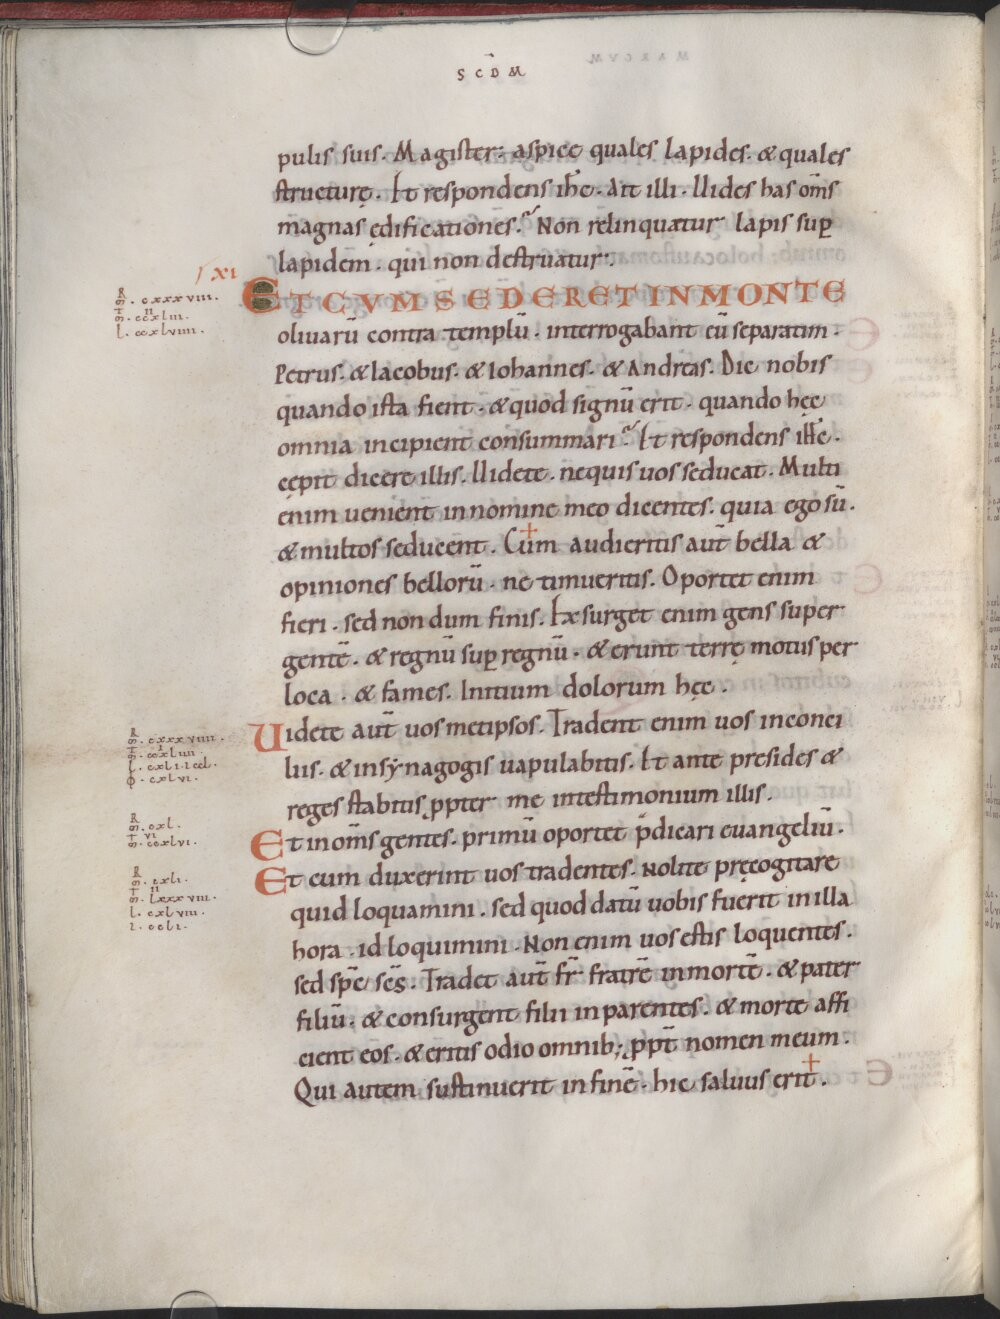 SCDM̄
pulis suis. Magister. aspice quales lapides. & quales
structurę. Et respondens ih̄c. Ait illi. Uides has om̄s
magnas ędificationes? Non relinquatur lapis sup̱
lapidem. qui non destruatur.
XI
ET CVM SEDERET IN MONTE
R. cxxxviiii.
ccxliii.
l. ccxlviiii.
oliuarū contra templū. interrogabant eū separatim.
Petrus. & Iacobus. & Iohannes. & Andreas. Dic nobis
quando ista fient. & quod signū erit. quando hęc
omnia incipient consummari? Et respondens ih̄c.
cępit dicere illis. Uidete. nequis uos seducat. Multi
enim uenient in nomine meo dicentes. quia ego sū.
& multos seducent. Cum audieritis aūt bella &
opiniones bellorū. ne timueritis. Oportet enim
fieri. sed non dum finis. Exsurget enim gens super
gentē. & regnū sup̱ regnū. & erunt terrę motus per
loca. & fames. Initium dolorum hęc.
Uidete aūt uosmetipsos. Tradent enim uos inconci
R. cxxxviiii.
l. cxli. iccl.
cxlvi.
liis. & in sẏnagogis uapulabitis. Et ante presides &
reges stabitis ꝓpter me intestimonium illis.
R. cxl.
ccxlvi.
Et in om̄s gentes. primū oportet p̄dicari euangeliū.
Et cum duxerint uos tradentes. Nolite pręcogitare
R. cxli.
lxxxviii.
l. cxlviii.
i. ccli.
quid loquamini. sed quod datū uobis fuerit in illa
hora. id loquimini. Non enim uos estis loquentes.
sed sp̄c sc̄s. Tradet aūt fr̄ fratrē in mortē. & pater
filiū. & consurgent filii in parentes. & morte affi
cient eos. & eritis odio omnib; ꝓpt̄ nomen meum.
Qui autem sustinuerit in finē. hic saluus erit.